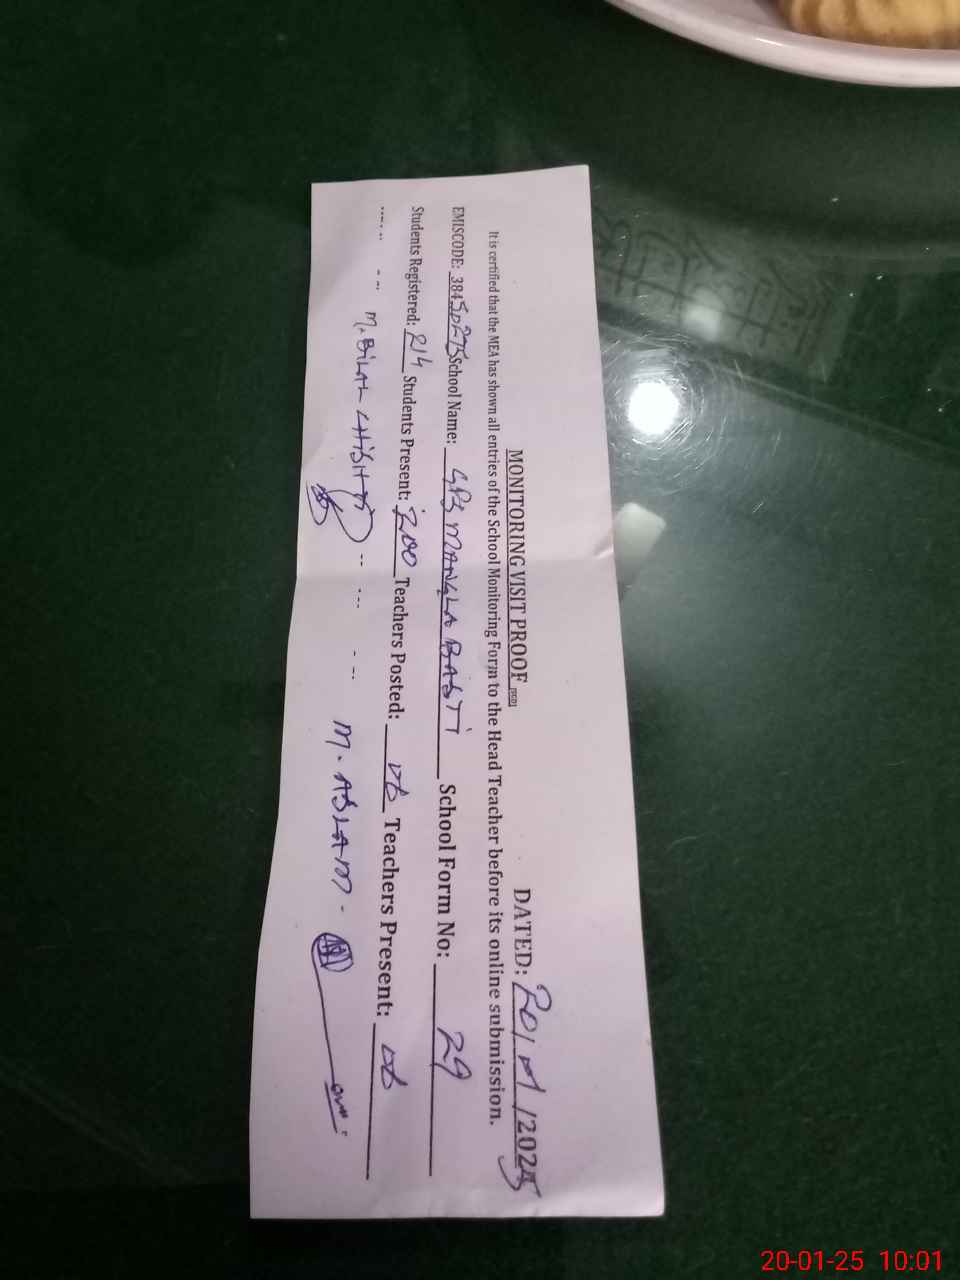 MONITORING VISIT PROOF DATED: 20/01/2025
It is certified that the MEA has shown all entries of the School Monitoring Form to the Head Teacher before its online submission.
EMISCODE: 38450275 School Name: GPS MANGLA BASTI School Form No: 29
Students Registered: 214 Students Present: 200 Teachers Posted: 06 Teachers Present: 06
M. BILAL CHISHTI M. ASLAM.
20-01-25 10:01